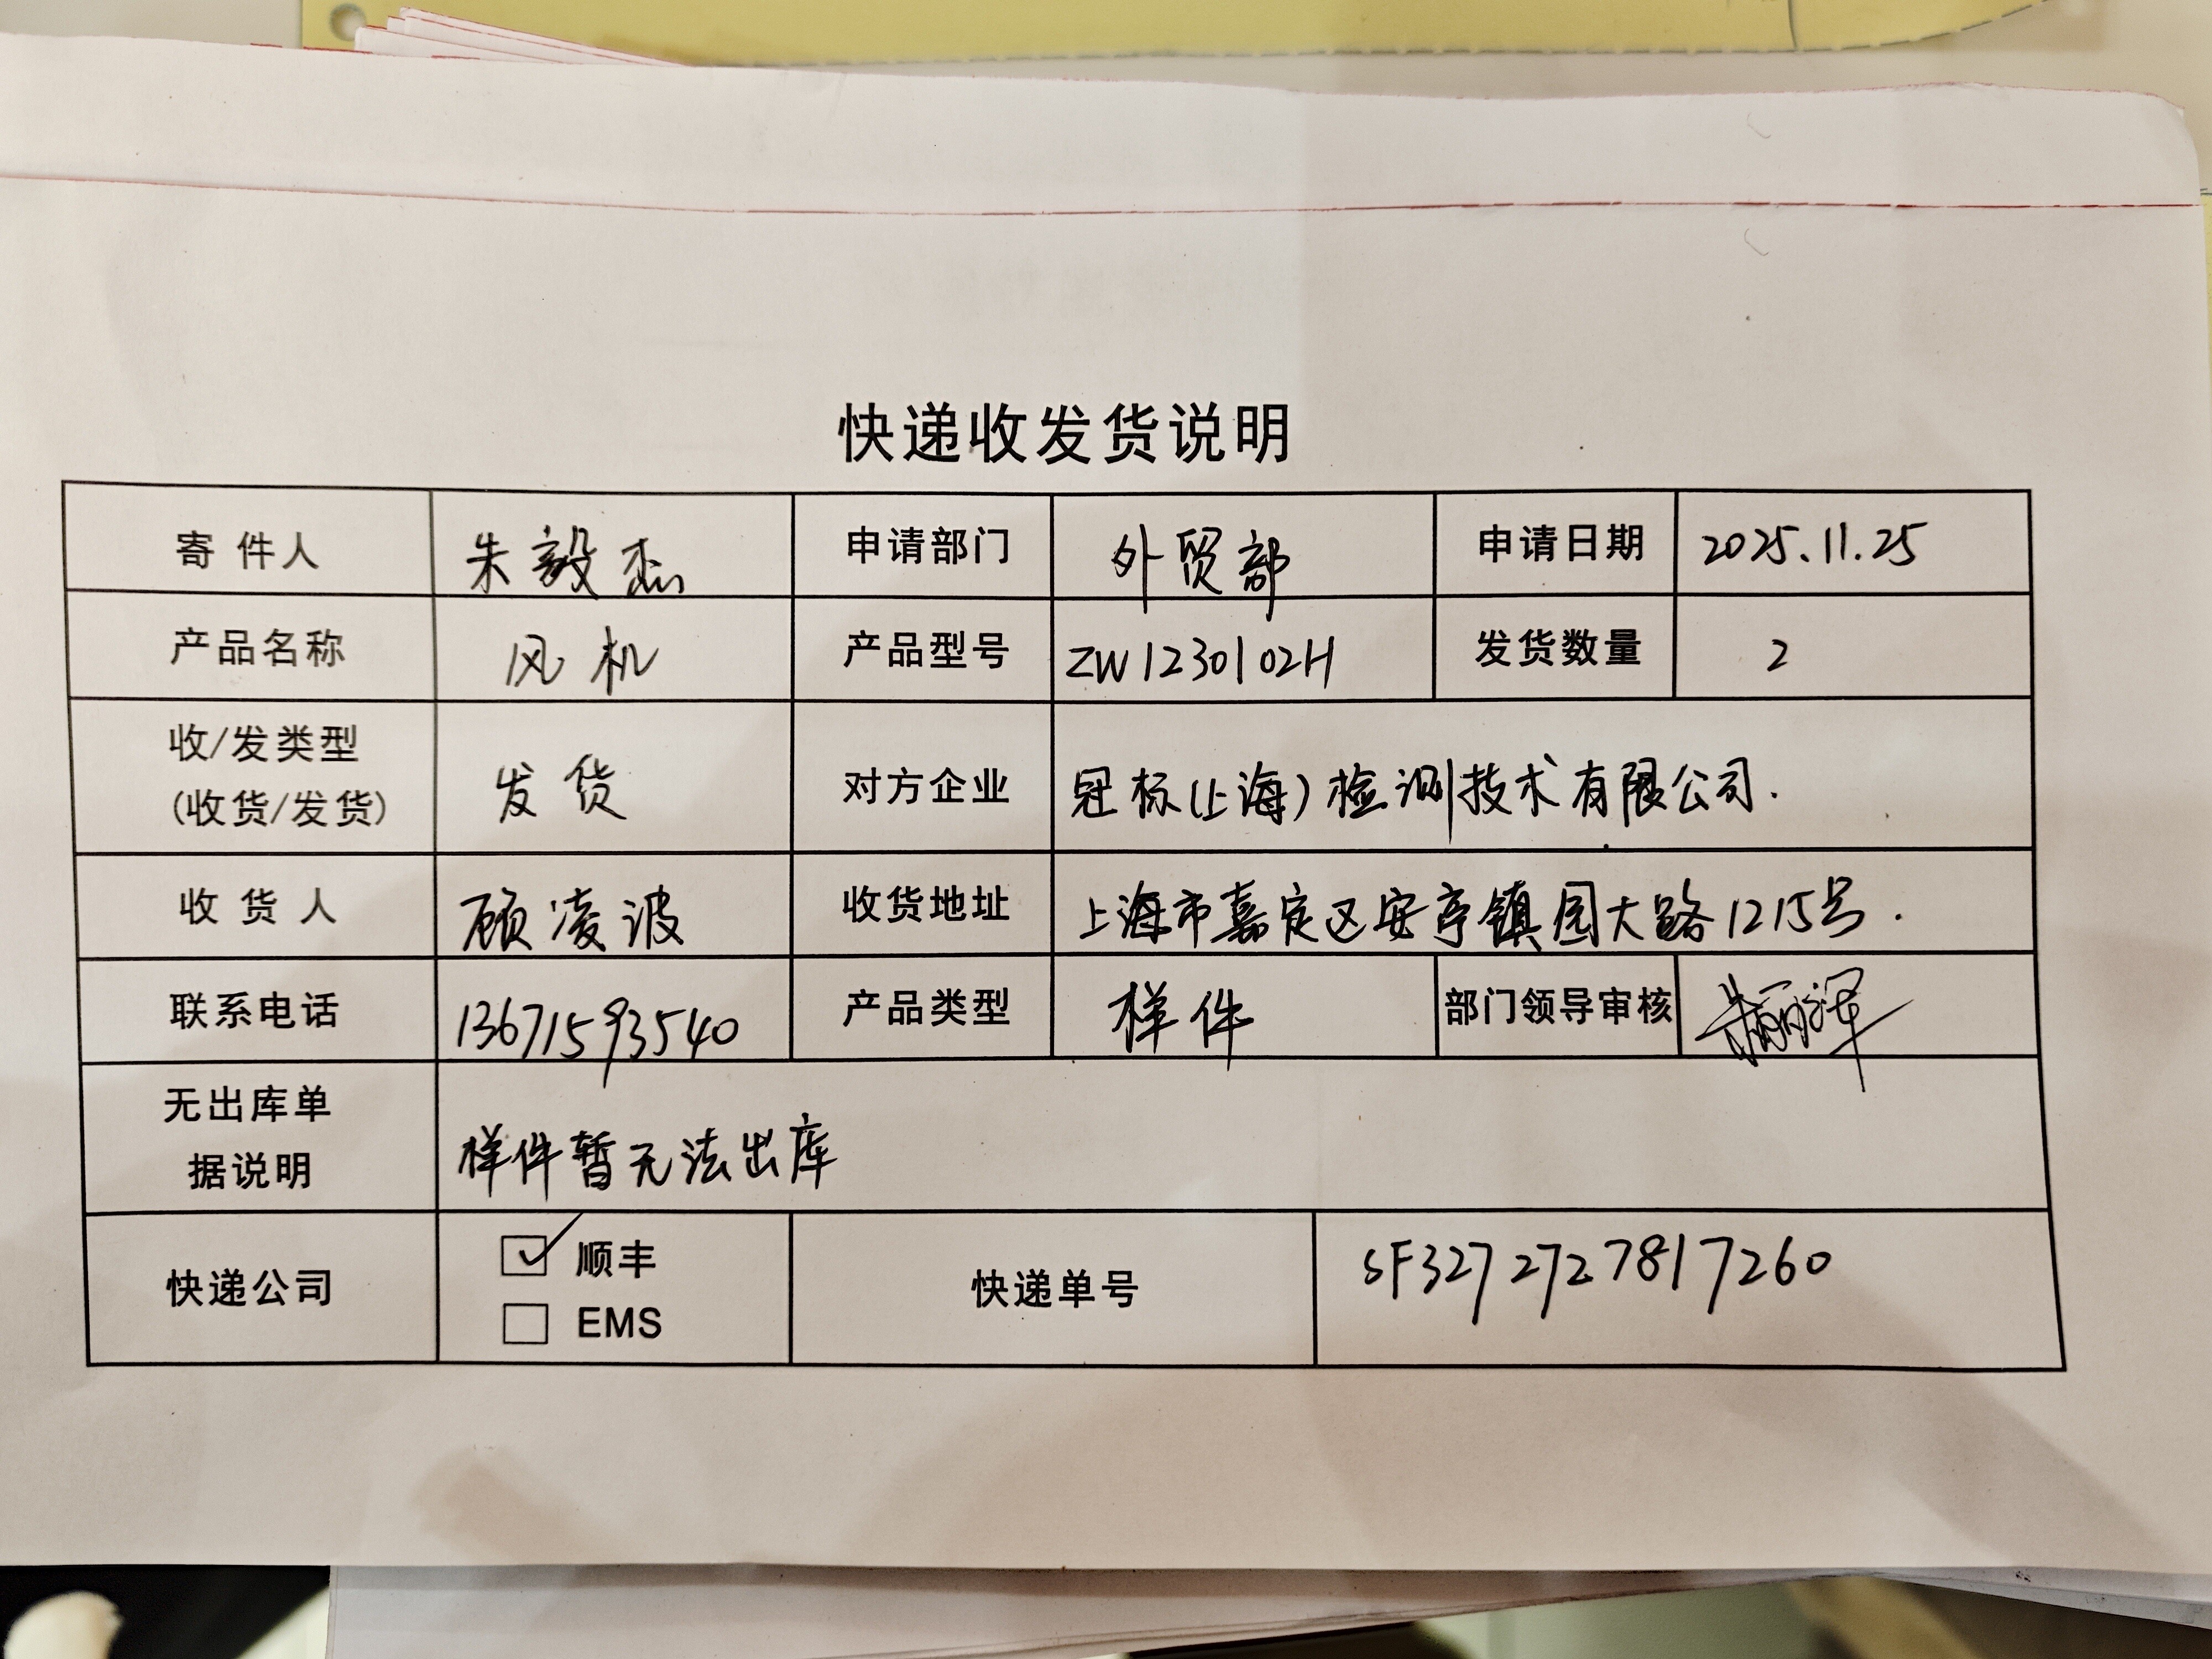 快递收发货说明
寄件人 朱毅杰 申请部门 外贸部 申请日期 2025.11.25
产品名称 风机 产品型号 ZW1230102H 发货数量 2
收/发类型
(收货/发货) 发货 对方企业 冠标(上海)检测技术有限公司.
收货人 顾凌波 收货地址 上海市嘉定区安亭镇园大路1215号.
联系电话 13671593540 产品类型 样件 部门领导审核
无出库单
据说明 样件暂无法出库
快递公司 ☑ 顺丰 快递单号 SF3272727817260
☐ EMS